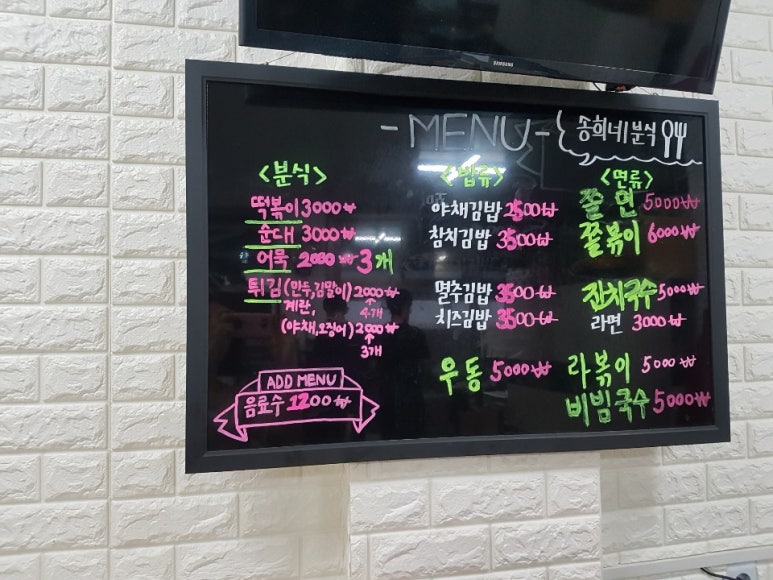 SAMSUNG
-MENU-
송희네분식
<분식>
떡볶이 3000₩
순대 3000₩
어묵 2000₩ 3개
튀김(만두,김말이) 2000₩
계란,
4개
(야채,오징어) 2000₩
3개
ADD MENU
음료수 1200₩
<밥류>
야채김밥 2500₩
참치김밥 3500₩
멸추김밥 3500₩
치즈김밥 3500₩
우동 5000₩
<면류>
쫄면 5000₩
쫄볶이 6000₩
잔치국수 5000₩
라면 3000₩
라볶이 5000₩
비빔국수 5000₩